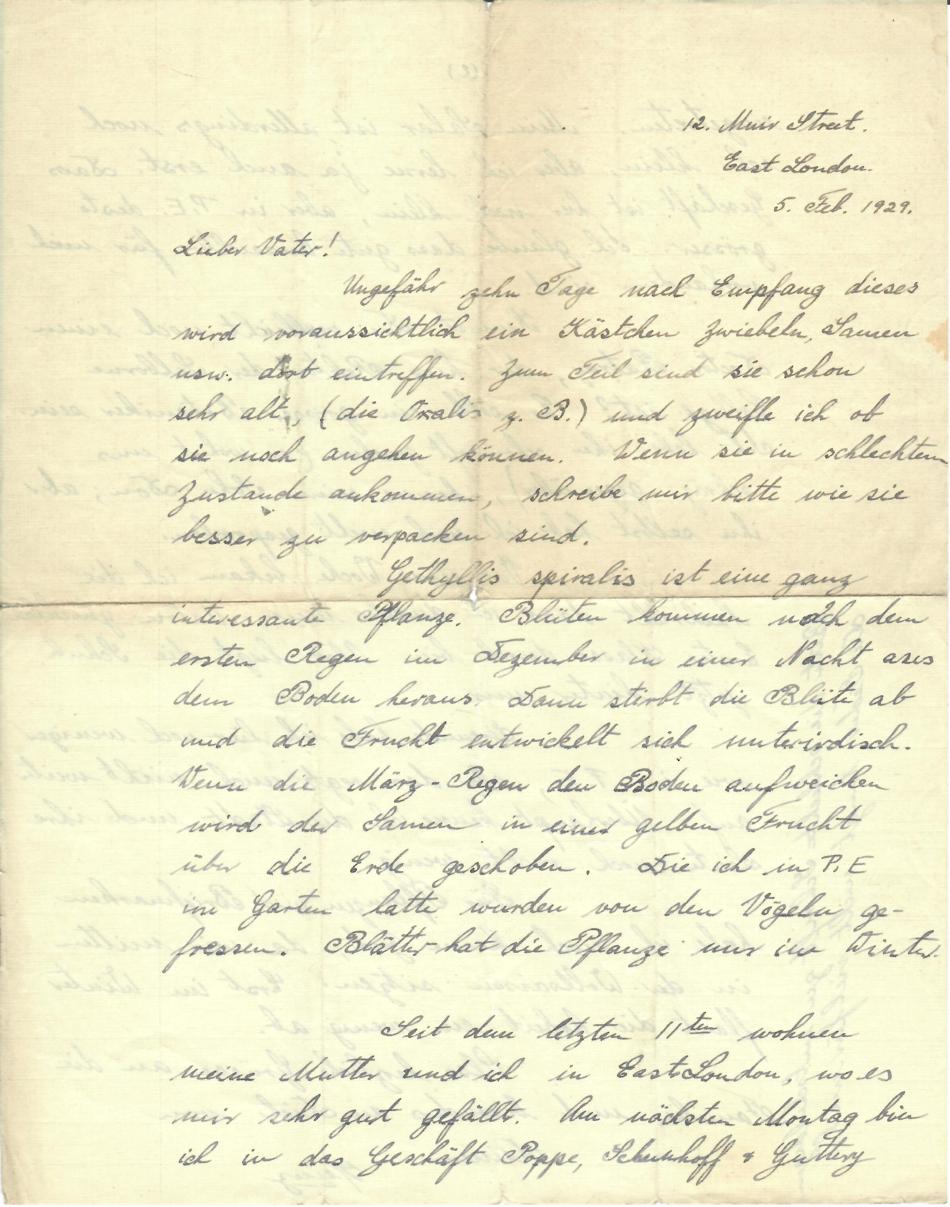 12. Muir Street.
East London.
5. Feb. 1929.
Lieber Vater!
Ungefähr zehn Tage nach Empfang dieses
wird voraussichtlich ein Kästchen Zwiebeln, Samen
usw. dort eintreffen. Zum Teil sind sie schon
sehr alt, (die Oxalis z. B.) und zweifle ich ob
sie noch angehen können. Wenn sie in schlechtem
Zustande ankommen, schreibe mir bitte wie sie
besser zu verpacken sind.
Gethyllis spiralis ist eine ganz
interessante Pflanze. Blüten kommen nach dem
ersten Regen im Dezember in einer Nacht aus
dem Boden heraus. Dann stirbt die Blüte ab
und die Frucht entwickelt sich unterirdisch.
Wenn die März-Regen den Boden aufweichen
wird der Samen in einer gelben Frucht
über die Erde geschoben. Die ich in P.E
im Garten hatte wurden von den Vögeln ge-
fressen. Blätter hat die Pflanze nur im Winter.
Seit dem letzten 11ten wohnen
meine Mutter und ich in East London, wo es
mir sehr gut gefällt. Am nächsten Montag bin
ich in das Geschäft Poppe, Schunhoff & Guttery